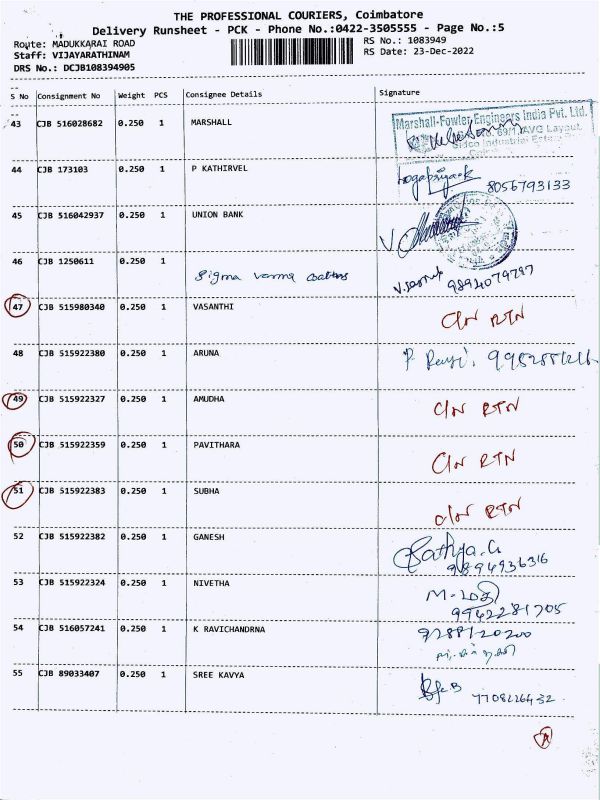 THE PROFESSIONAL COURIERS, Coimbatore
Delivery Runsheet - PCK - Phone No.:0422-3505555 - Page No.:5
Route: MADUKKARAI ROAD RS No.: 1083949
Staff: VIJAYARATHINAM RS Date: 23-Dec-2022
DRS No.: DCJB108394905
S No Consignment No Weight PCS Consignee Details Signature
43 CJB 516028682 0.250 1 MARSHALL
Marshall-Fowler Engineers India Pvt. Ltd.
AVG Layout
Sidco Industrial Estate
44 CJB 173103 0.250 1 P KATHIRVEL
8056793133
45 CJB 516042937 0.250 1 UNION BANK
46 CJB 1250611 0.250 1 Sigma
9894079797
47 CJB 515980340 0.250 1 VASANTHI C/N RTN
48 CJB 515922380 0.250 1 ARUNA
49 CJB 515922327 0.250 1 AMUDHA C/N RTN
50 CJB 515922359 0.250 1 PAVITHARA C/N RTN
51 CJB 515922383 0.250 1 SUBHA C/N RTN
52 CJB 515922382 0.250 1 GANESH Sathya.G
9894936316
53 CJB 515922324 0.250 1 NIVETHA M.மதி
9942281705
54 CJB 516057241 0.250 1 K RAVICHANDRNA 9788120200
55 CJB 89033407 0.250 1 SREE KAVYA
7708226432
A